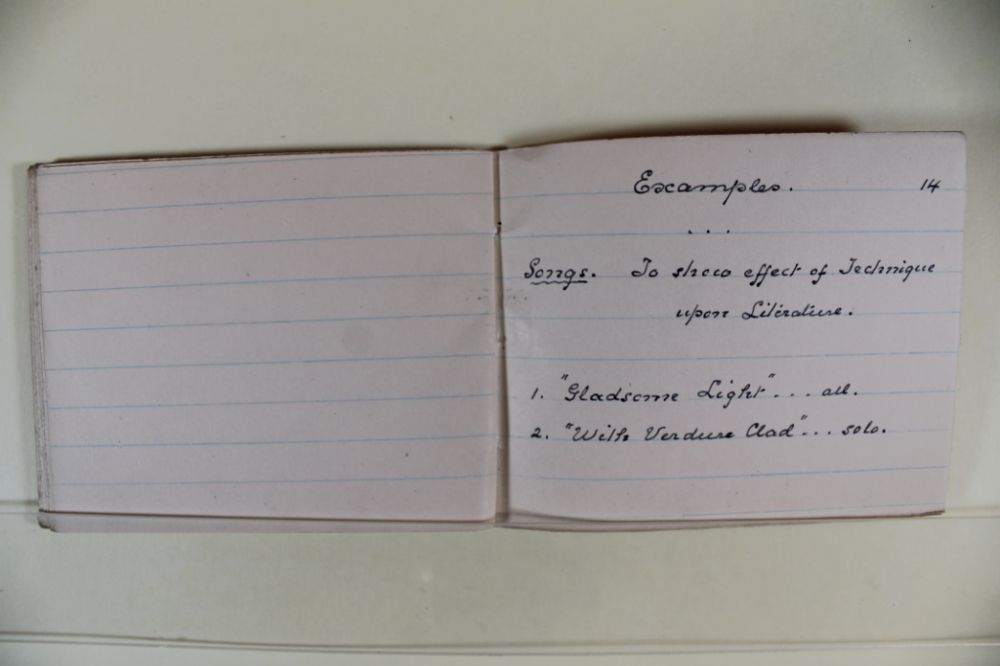 Examples. 14
. . .
Songs. To show effect of Technique
upon Literature.
1. "Gladsome Light" ... all.
2. "With Verdure Clad" ... solo.